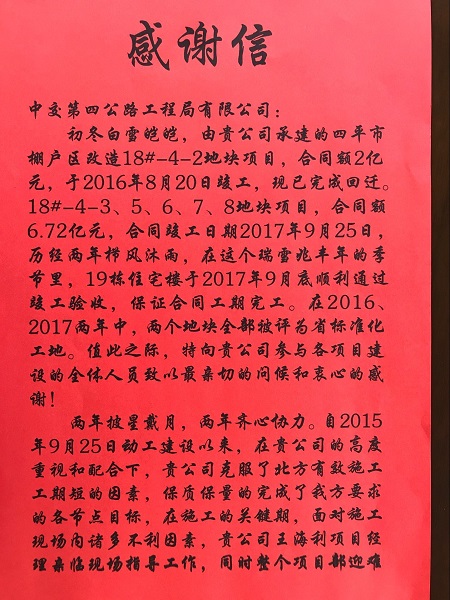 感谢信
中交第四公路工程局有限公司：
初冬白雪皑皑，由贵公司承建的四平市
棚户区改造18#-4-2地块项目，合同额2亿
元，于2016年8月20日竣工，现已完成回迁。
18#-4-3、5、6、7、8地块项目，合同额
6.72亿元，合同竣工日期2017年9月25日，
历经两年栉风沐雨，在这个瑞雪兆丰年的季
节里，19栋住宅楼于2017年9月底顺利通过
竣工验收，保证合同工期完工。在2016、
2017两年中，两个地块全部被评为省标准化
工地。值此之际，特向贵公司参与各项目建
设的全体人员致以最亲切的问候和衷心的感
谢！
两年披星戴月，两年齐心协力。自2015
年9月25日动工建设以来，在贵公司的高度
重视和配合下，贵公司克服了北方有效施工
工期短的因素，保质保量的完成了我方要求
的各节点目标，在施工的关键期，面对施工
现场内诸多不利因素，贵公司王海利项目经
理亲临现场指导工作，同时整个项目部迎难